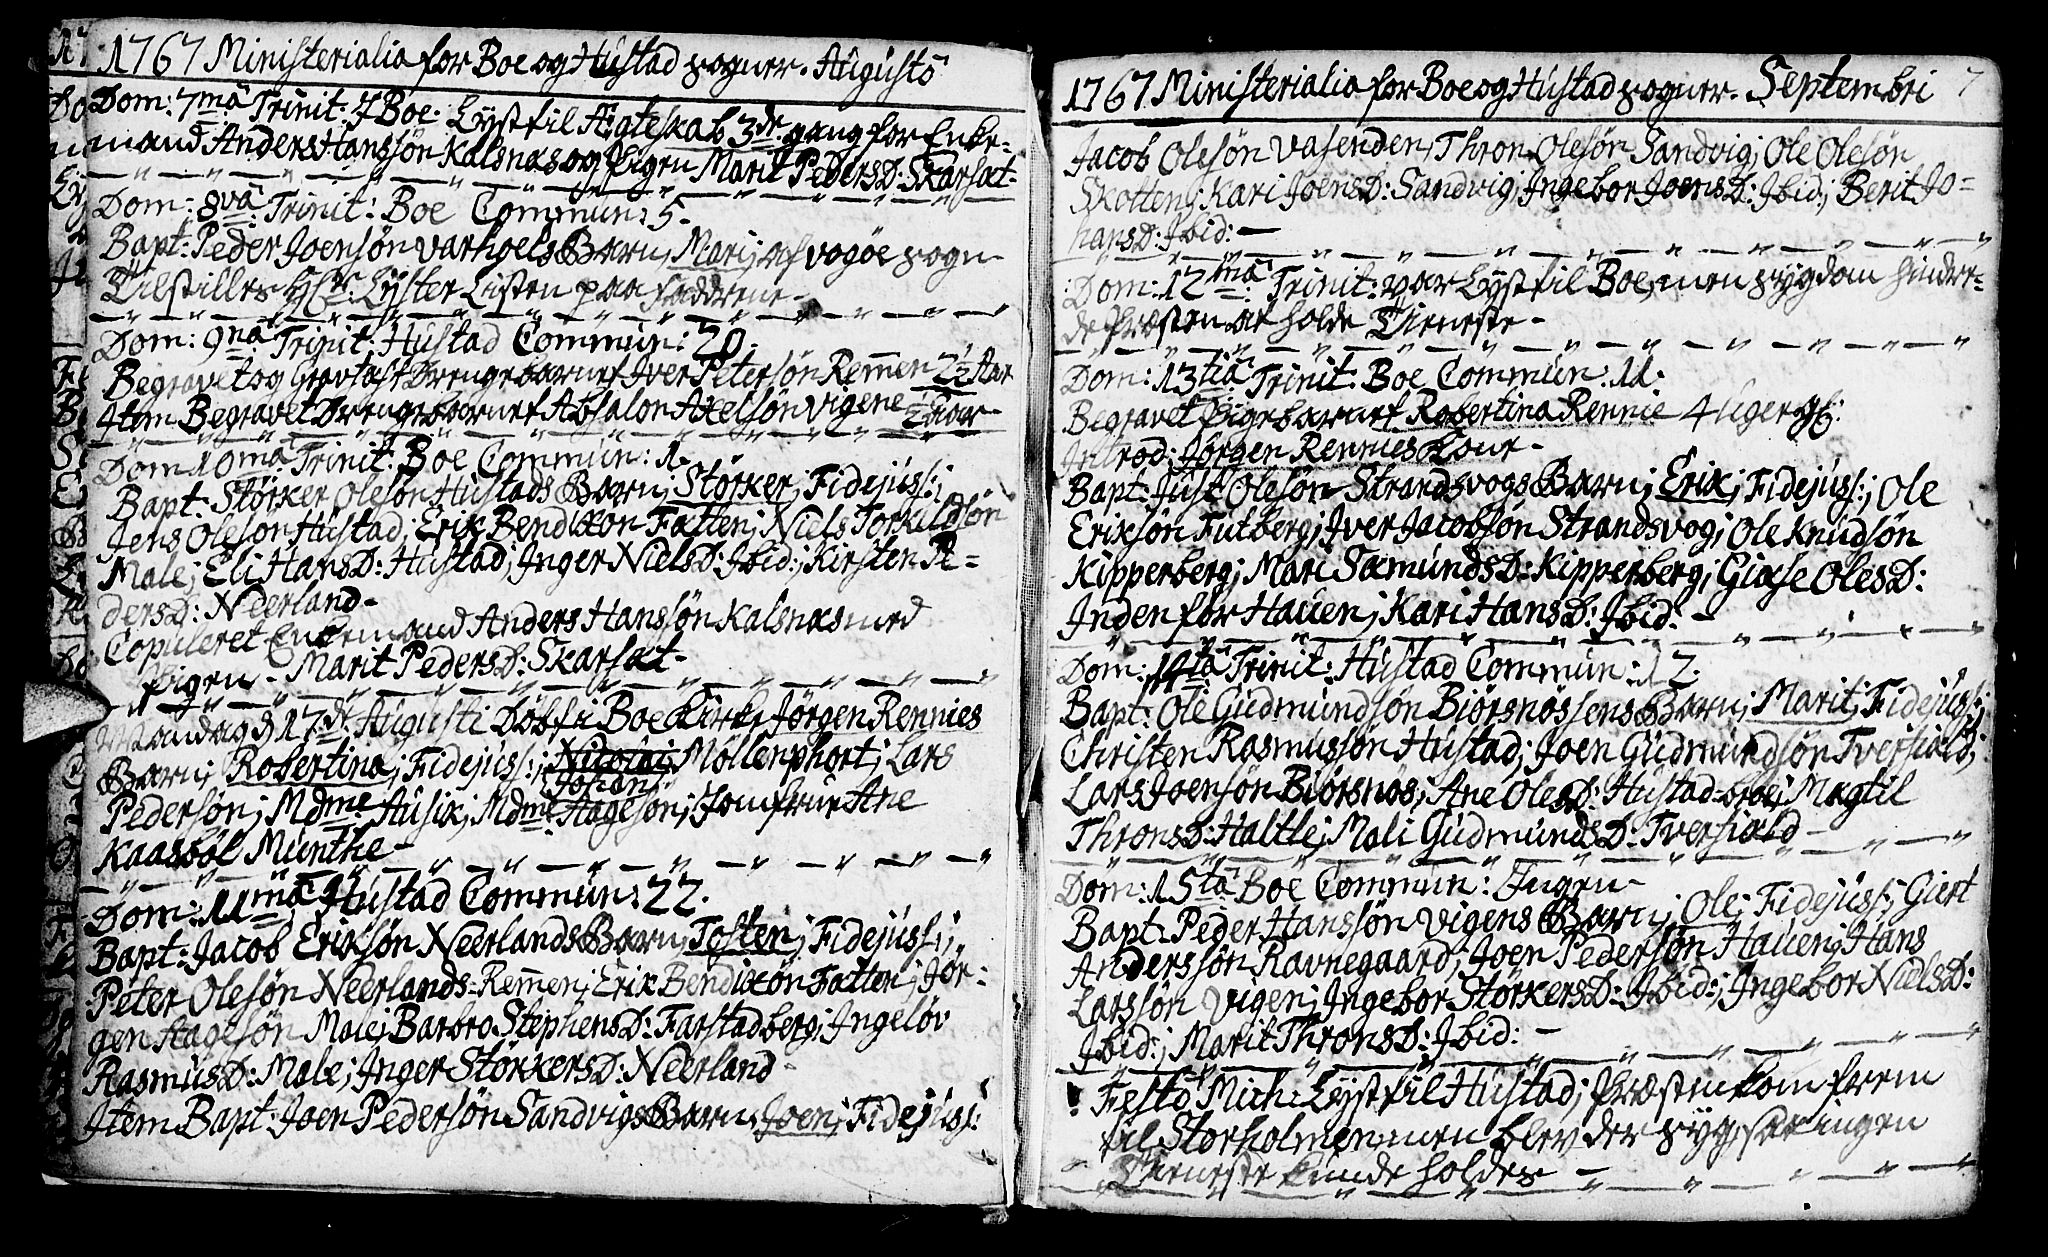 1767 Ministerialia for Boe og Hustad sogner. Augusto
Dom: 7mâ Trinit. I Boe. Lyst til Ægteskab 3die gang for Enke-
mand Anders Hanssøn Kalsnæs og Pigen Marit PedersD: Skarsæt.
Dom: 8vâ Trinit: Boe Commun: 5.
Bapt: Peder Joensøn Varhoels Barn, Mari; af vogøe sogn
Tilstilles Lyster Listen paa fadderne.
Dom: 9nâ Trinit. Hustad Commun: 20.
Begravet og Gravfast Drengebarn af Iver Petersøn Remen 2½ Aar
Item Begravet Drengebarn af Absalon Axelsøn Vigene
Dom 10mâ Trinit: Boe Commun: 1.
Bapt: Størker Olesøn Hustads Barn; Størker; Fidejuss:;
Jens Olesøn Hustad; Erik Bendixøn Fatten; Niels Torkildsøn
Male; Eli HansD: Hustad; Inger NielsD: Ibid:; Kirsten Pe-
dersD: Neerland.
Copuleret Enkemand Anders Hanssøn Kalsnæs med
Pigen Marit PedersD: Skarsæt.
Mondag d 17de Augusti Døbt i Boe Kirke Jørgen Rennies
Barn; Robertina; Fidejuss:; Nicolai Møllenphort; Lars
Johan
Pedersøn; Mdme Husik; Mdme Hagesøn; Jomfrue Ane
Kaasbøl Munthe.
Dom: 11mâ Hustad Commun: 22.
Bapt: Jacob Eriksøn Neerlands Barn, Tosten; Fidejuss:;
Peter Olesøn Neerlands-Remen; Erik Bendixøn Fatten; Jør-
gen Hagesøn Male; Barbro StephensD: Farstadberg; Ingeløv
RasmusD: Male; Inger StørkersD: Neerland.
Item Bapt: Joen Pedersøn Sandvigs Barn, Joen; Fidejuss:
1767 Ministerialia for Boe og Hustad sogner. Septembri 7
Jacob Olesøn Vasenden, Thron Olesøn Sandvig; Ole Olesøn
Skotten; Kari JoensD: Sandvig; Ingebor JoensD: Ibid:; Berit Jo-
hansD: Ibid:
Dom: 12mâ Trinit: var Lyst til Boe, men sygdom hindre-
de Præsten at holde Tieneste.
Dom: 13tiâ Trinit: Boe Commun: 11.
Begravet Pigebarn af Robertina Rennie 4 Uger
Introd: Jørgen Rennies Kone.
Bapt: Just Olesøn Strandsvogs Barn; Erik; Fidejuss:; Ole
Eriksøn Futberg; Iver Jacobsøn Strandsvog; Ole Knudsøn
Kipperberg; Mari SæmundsD: Kipperberg; Giøse OlesD:
Inden for Hauen; Kari HansD: Ibid:
Dom: 14tâ Trinit: Hustad Commun: 12.
Bapt: Ole Gudmundsøn Biørsnøssens Barn; Marit; Fidejuss:;
Christen Rasmussøn Hustad; Joen Gudmundsøn Tversiæld;
Lars Joensøn Biørsnos; Ane OlesD: Hustad-broe; Magtil
ThronsD: Haltle; Mali GudmundsD: Tversiæld
Dom: 15tâ Boe Commun: Ingen.
Bapt: Peder Hanssøn Vigens Barn; Ole; Fidejuss:; Giert
Anderssøn Ravnegaard; Joen Pedersøn Hauen; Hans
Larssøn Vigen; Ingebor StørkersD: Ibid:; Ingebor NielsD:
Ibid:; Marit ThronsD: Ibid:
Festo Mich: Lyst til Hustad; Præsten kom frem
til Storholmen men blev der syg, saa ingen
Tieneste kunde holdes